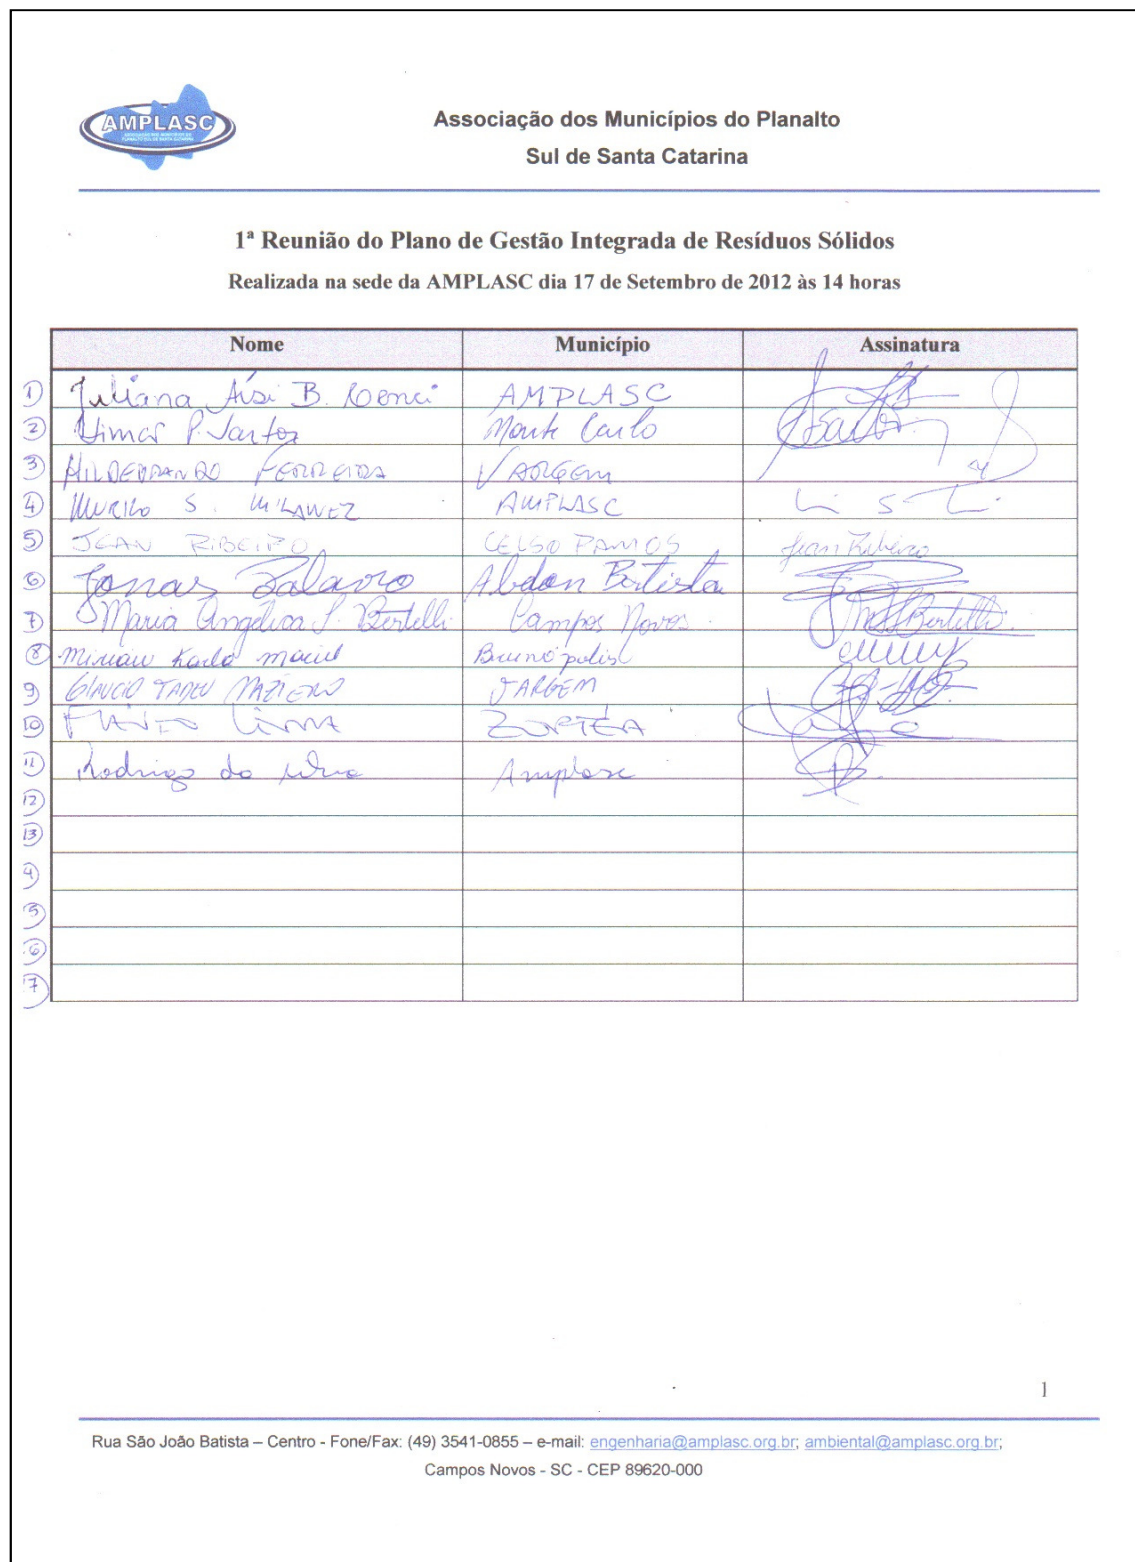 AMPLASC
Associação dos Municípios do Planalto
Sul de Santa Catarina
1ª Reunião do Plano de Gestão Integrada de Resíduos Sólidos
Realizada na sede da AMPLASC dia 17 de Setembro de 2012 às 14 horas
Nome Município Assinatura
1) Juliana B. AMPLASC
2) P. Santos Monte Carlo
3) HILDEBRANDO FERREIRA VARGEM
4) MURILO S. AMPLASC
5) JEAN RIBEIRO CELSO RAMOS Jean Ribeiro
6) Jonas Abdon Batista
7) Maria Angélica S. Bertelli Campos Novos. Bertelli
8) Miriam Karla Maciel Brunópolis
9) GLAUCIO TADEU VARGEM
10) ZORTÉA
11) Rodrigo da Silva Amplasc
12)
13)
4)
5)
6)
7)
1
Rua São João Batista – Centro - Fone/Fax: (49) 3541-0855 – e-mail: engenharia@amplasc.org.br; ambiental@amplasc.org.br;
Campos Novos - SC - CEP 89620-000